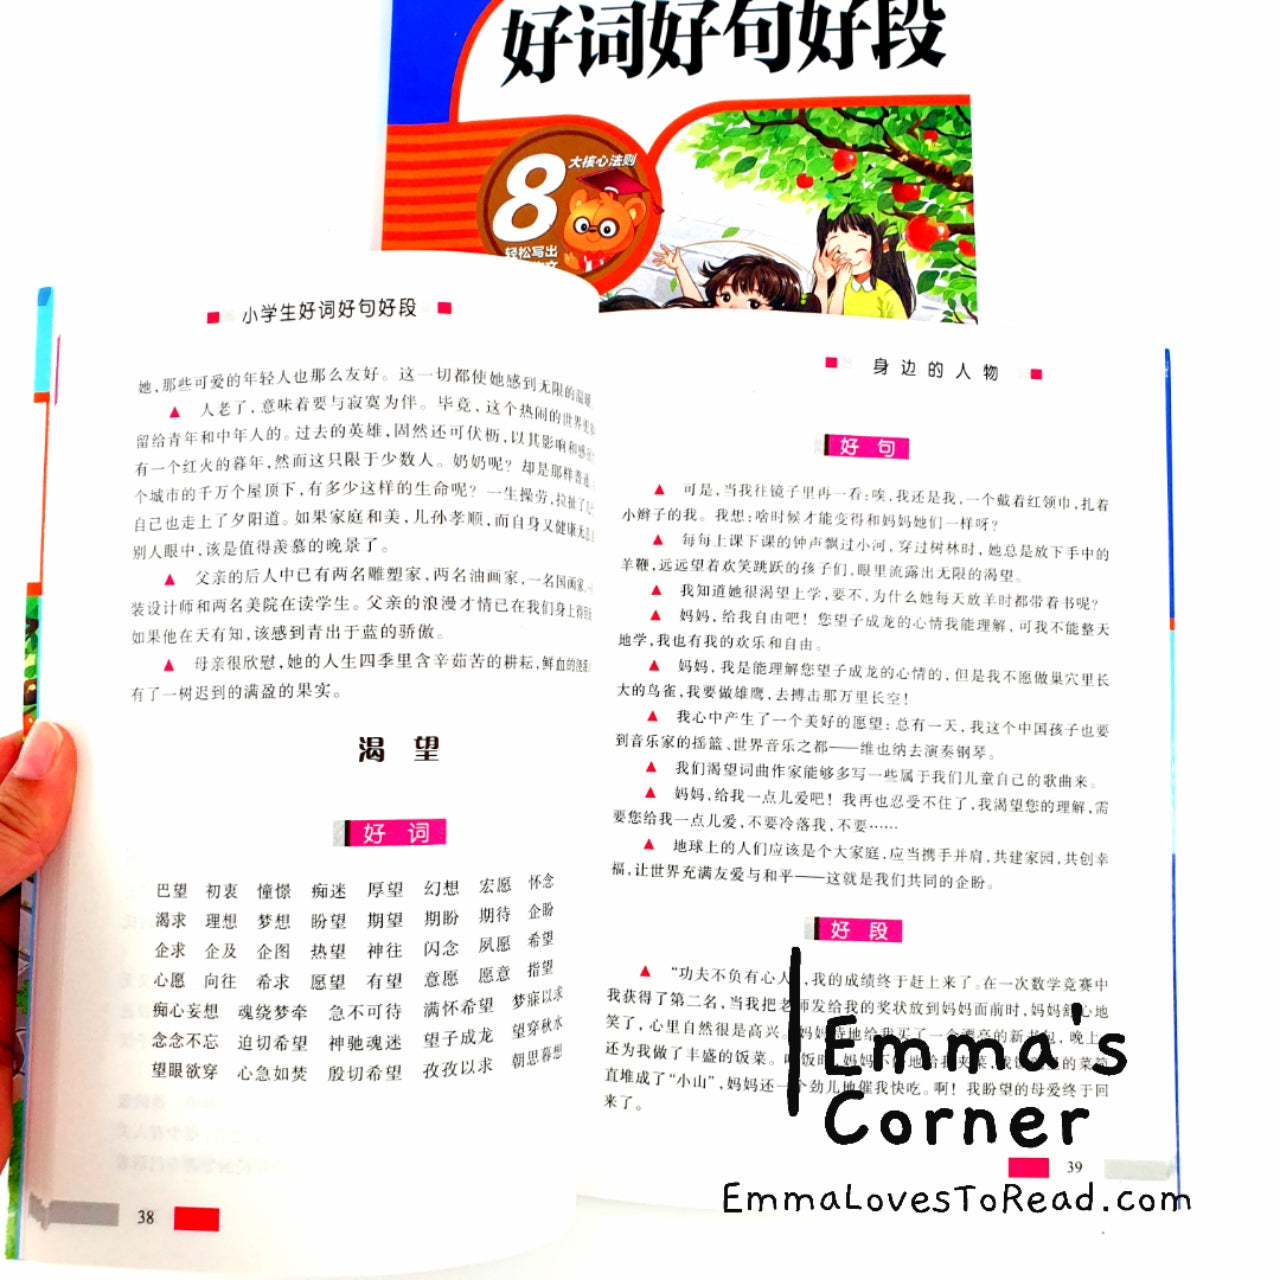 好词好句好段
8
大核心法则
轻松写出
小学生好词好句好段
她，那些可爱的年轻人也那么友好。这一切都使她感到无限的温暖
▲ 人老了，意味着要与寂寞为伴。毕竟，这个热闹的世界更多
留给青年和中年人的。过去的英雄，固然还可伏枥，以其影响和感
有一个红火的暮年，然而这只限于少数人。奶奶呢？却是那样普通
个城市的千万个屋顶下，有多少这样的生命呢？一生操劳，拉扯了
自己也走上了夕阳道。如果家庭和美，儿孙孝顺，而自身又健康无
别人眼中，该是值得羡慕的晚景了。
▲ 父亲的后人中已有两名雕塑家，两名油画家，一名国画家，
装设计师和两名美院在读学生。父亲的浪漫才情已在我们身上得
如果他在天有知，该感到青出于蓝的骄傲。
▲ 母亲很欣慰，她的人生四季里含辛茹苦的耕耘，鲜血的
有了一树迟到的满盈的果实。
渴望
好词
巴望 初衷 憧憬 痴迷 厚望 幻想 宏愿 怀念
渴求 理想 梦想 盼望 期望 期盼 期待 企盼
企求 企及 企图 热望 神往 闪念 夙愿 希望
心愿 向往 希求 愿望 有望 意愿 愿意 指望
痴心妄想 魂绕梦牵 急不可待 满怀希望 梦寐以求
念念不忘 迫切希望 神驰魂迷 望子成龙 望穿秋水
望眼欲穿 心急如焚 殷切希望 孜孜以求 朝思暮想
38
身边的人物
好句
▲ 可是，当我往镜子里再一看：唉，我还是我，一个戴着红领巾，扎着
小辫子的我。我想：啥时候才能变得和妈妈她们一样呀？
▲ 每每上课下课的钟声飘过小河，穿过树林时，她总是放下手中的
羊鞭，远远望着欢笑跳跃的孩子们，眼里流露出无限的渴望。
▲ 我知道她很渴望上学，要不，为什么她每天放羊时都带着书呢？
▲ 妈妈，给我自由吧！您望子成龙的心情我能理解，可我不能整天
地学，我也有我的欢乐和自由。
▲ 妈妈，我是能理解您望子成龙的心情的，但是我不愿做巢穴里长
大的鸟雀，我要做雄鹰，去搏击那万里长空！
▲ 我心中产生了一个美好的愿望：总有一天，我这个中国孩子也要
到音乐家的摇篮、世界音乐之都——维也纳去演奏钢琴。
▲ 我们渴望词曲作家能够多写一些属于我们儿童自己的歌曲来。
▲ 妈妈，给我一点儿爱吧！我再也忍受不住了，我渴望您的理解，需
要您给我一点儿爱，不要冷落我，不要……
▲ 地球上的人们应该是个大家庭，应当携手并肩，共建家园，共创幸
福，让世界充满友爱与和平——这就是我们共同的企盼。
好段
▲ “功夫不负有心人”，我的成绩终于赶上来了。在一次数学竞赛中
我获得了第二名，当我把老师发给我的奖状放到妈妈面前时，妈妈舒心地
笑了，心里自然很是高兴。妈妈特地给我买了一个漂亮的新书包，晚上
还为我做了丰盛的饭菜。吃饭时，妈妈不停地给我夹菜，我饭碗里的菜简
直堆成了“小山”，妈妈还一个劲儿地催我快吃。啊！我盼望的母爱终于回
来了。
39
Emma's
Corner
EmmaLovesToRead.com